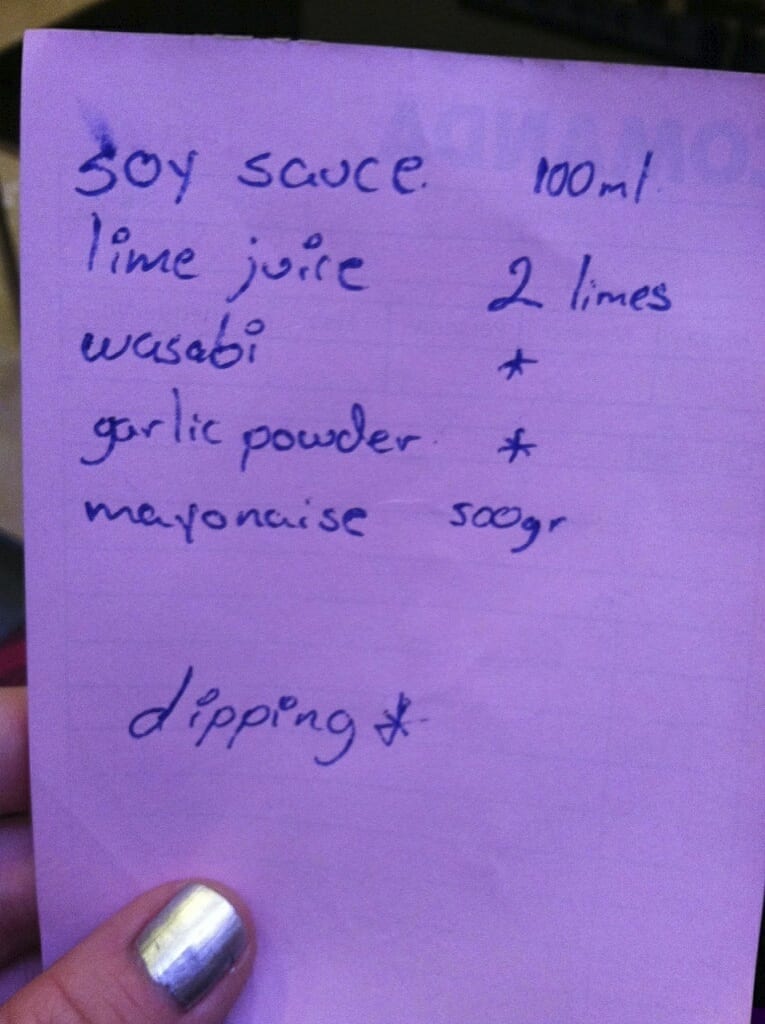 COMANDA
soy sauce. 100ml.
lime juice 2 limes
wasabi *
garlic powder. *
mayonaise 500gr
dipping *